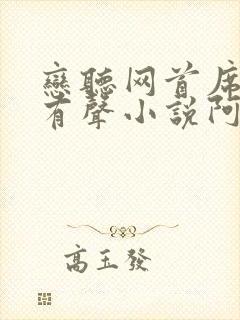 戀聽网首席
有聲小說阿
高玉發